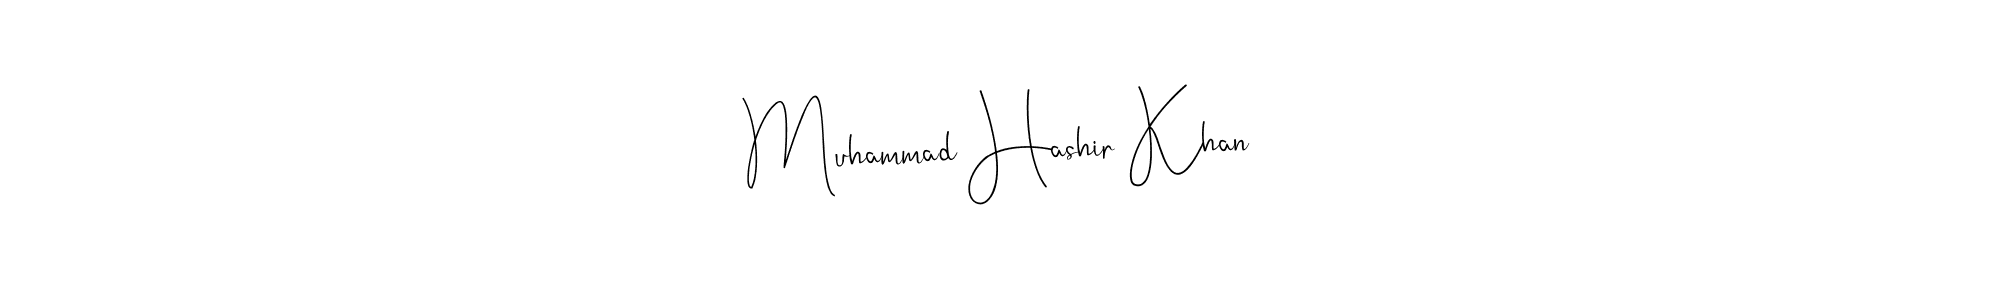 Muhammad Hashir Khan